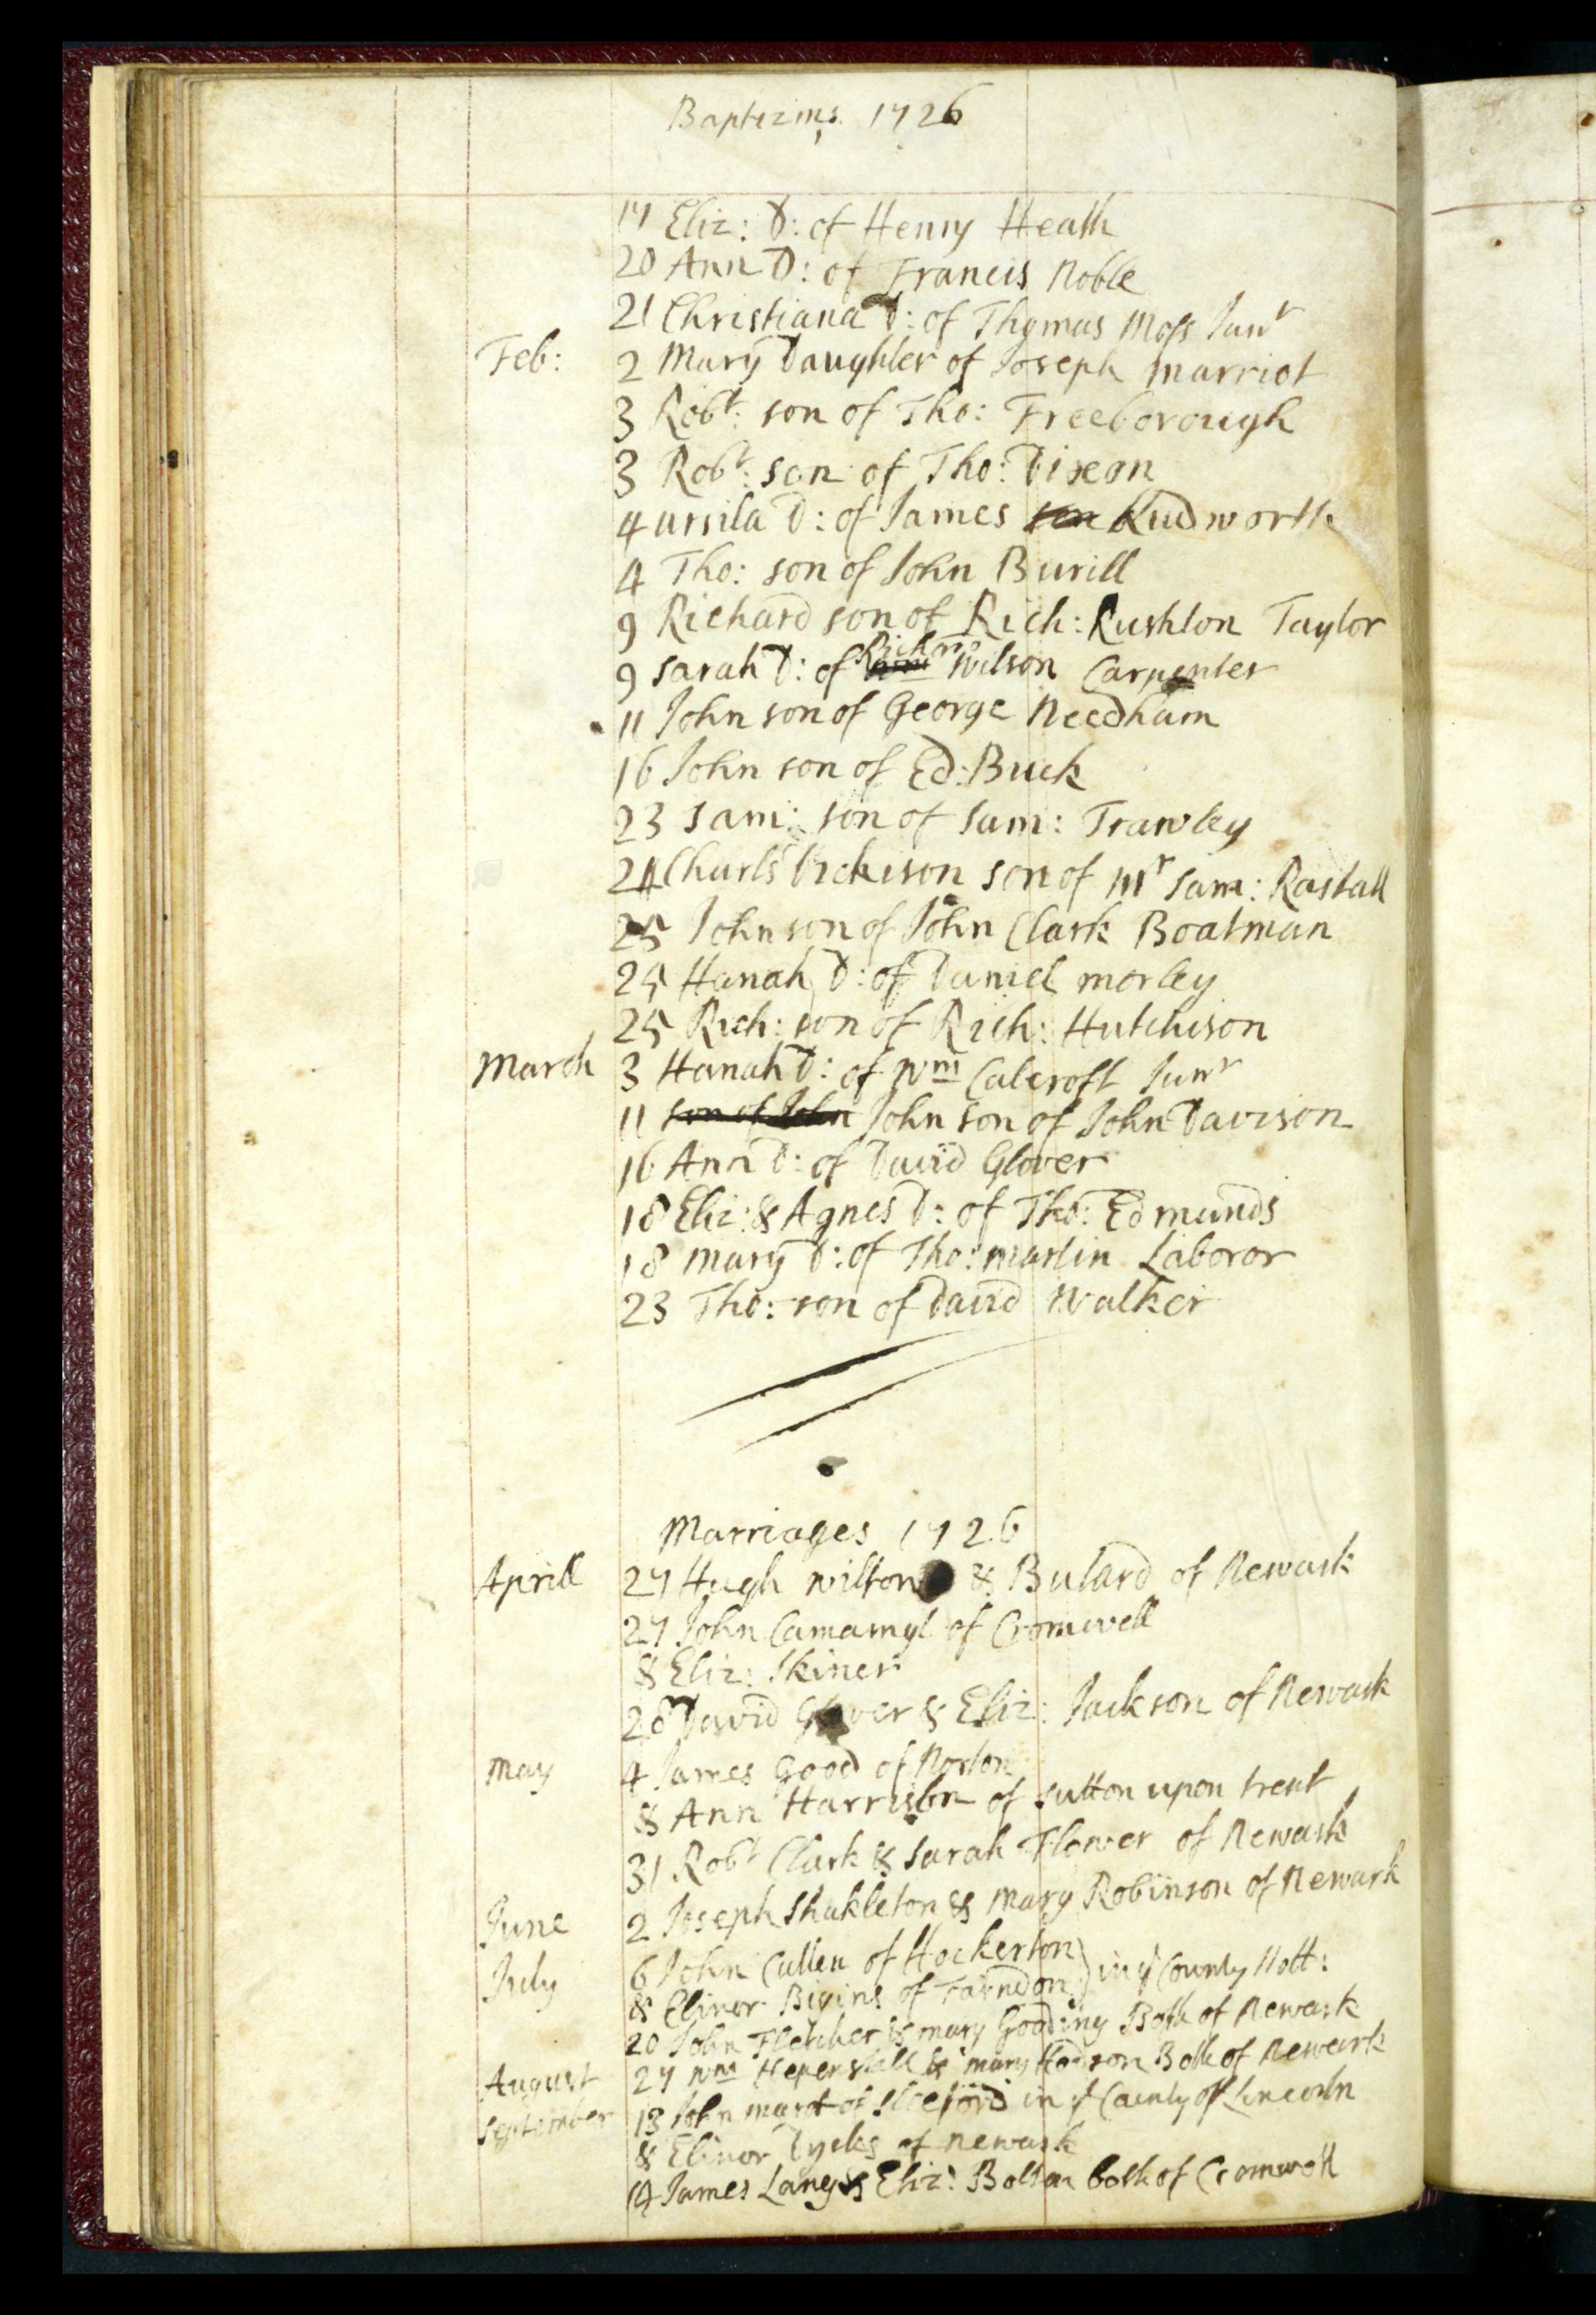 Baptizms 1726
17 Eliz: D: of Henry Heath
20 Ann D: of Francis Noble
21 Christiana D: of Thomas Moss Junr
Feb: 2 Mary Daughter of Joseph Marriot
3 Robt: son of Tho: Freeborough
3 Robt: son of Tho: Dixon
4 Ursila D: of James Kudworth
4 Tho: son of John Burill
9 Richard son of Rich: Rushton Taylor
9 Sarah D: of Rich: Wilson Carpenter
11 John son of George Needham
16 John son of Ed: Buck
23 Sam: son of Sam: Trawley
24 Charls Dickison son of Mr Sam: Rastall
25 John son of John Clark Boatman
25 Hanah D: of Daniel Morley
25 Rich: son of Rich: Hutchison
March 3 Hanah D: of Wm Calcroft Junr
11 son of John John son of John Davison
16 Ann D: of David Glover
18 Eliz: & Agnes D: of Tho: Edmunds
18 Mary D: of Tho: Martin Laboror
23 Tho: son of David Walker
Marriages 1726
Aprill 27 Hugh Wilson & Bulard of Newark
27 John Camamyl of Cromwell
& Eliz: Skiner
28 David Glover & Eliz: Jackson of Newark
May 4 James Good of Norton
& Ann Harrison of Sutton upon trent
31 Robt Clark & Sarah Flower of Newark
June 2 Joseph Shakleton & Mary Robinson of Newark
July 6 John Cullen of Hockerton
& Elinor Bigins of Farndon } in ye County Nott:
20 John Fletcher & Mary Gooding Both of Newark
August 27 Wm Heperstall & Mary Hodson Both of Newark
September 13 John of in ye County of Lincorln
& Elinor Dycks of Newark
14 James Lang & Eliz: Bolson both of Cromwell